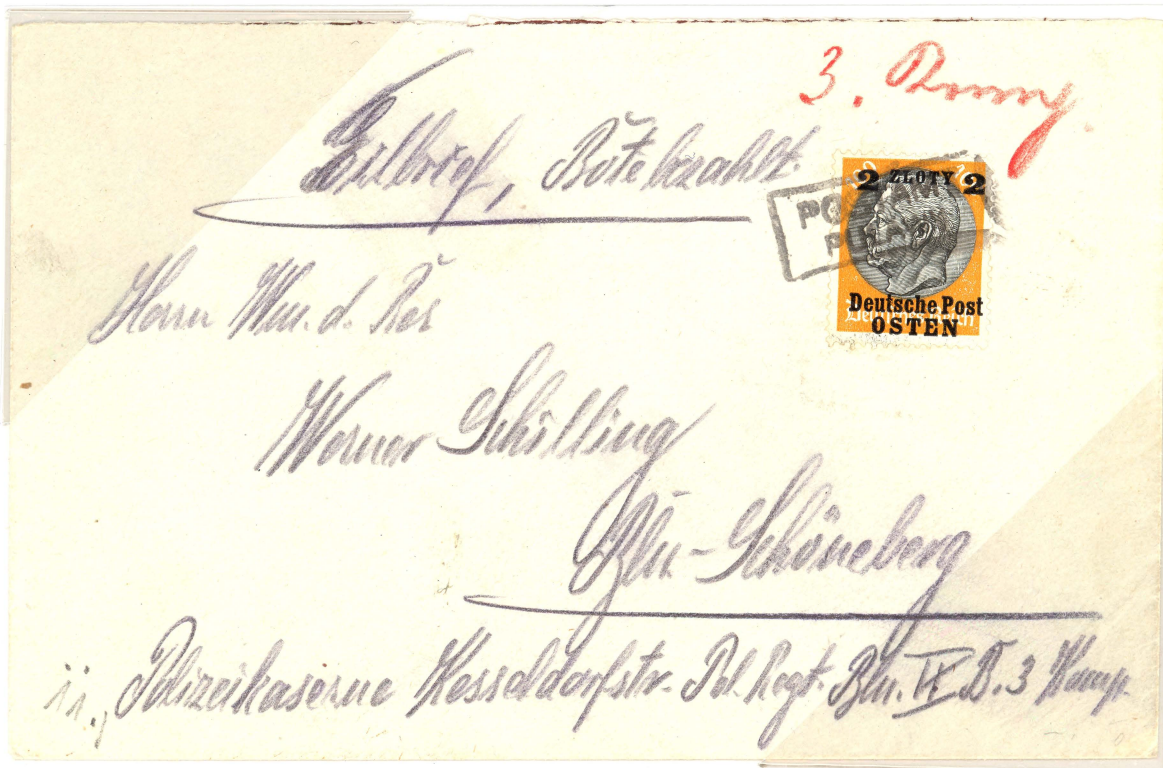 3.
Eilbrief, Bote bezahlt.
2 ZŁOTY 2
Deutsche Post
OSTEN
Deutsches Reich
Herrn Wm. d. Res
Werner Schilling
Bln-Schöneberg
Polizeikaserne Kesseldorfstr. Pol. Regt. Bln. IX B. 3 Komp.